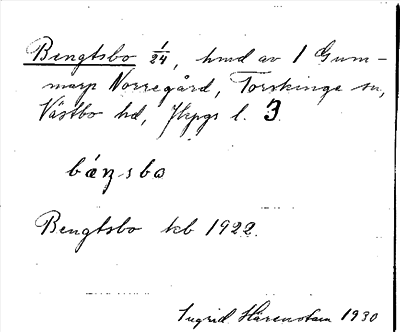 Bengtsbo 1/24, hmd av 1 Gum-
marp Norregård, Torskinge sn,
Västbo hd, Jkpgs l. 3.
báŋsbo
Bengtsbo kb 1922.
Ingrid Härenstam 1930